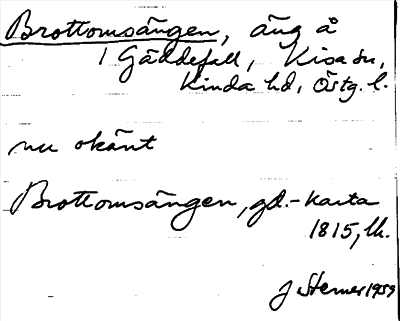 Brottomsängen, äng å
1 Gäddefall, Kisa sn,
Kinda hd, Östg. l.
nu okänt
Brottomsängen, gd.-karta
1815, lk.
J Sterner 1959